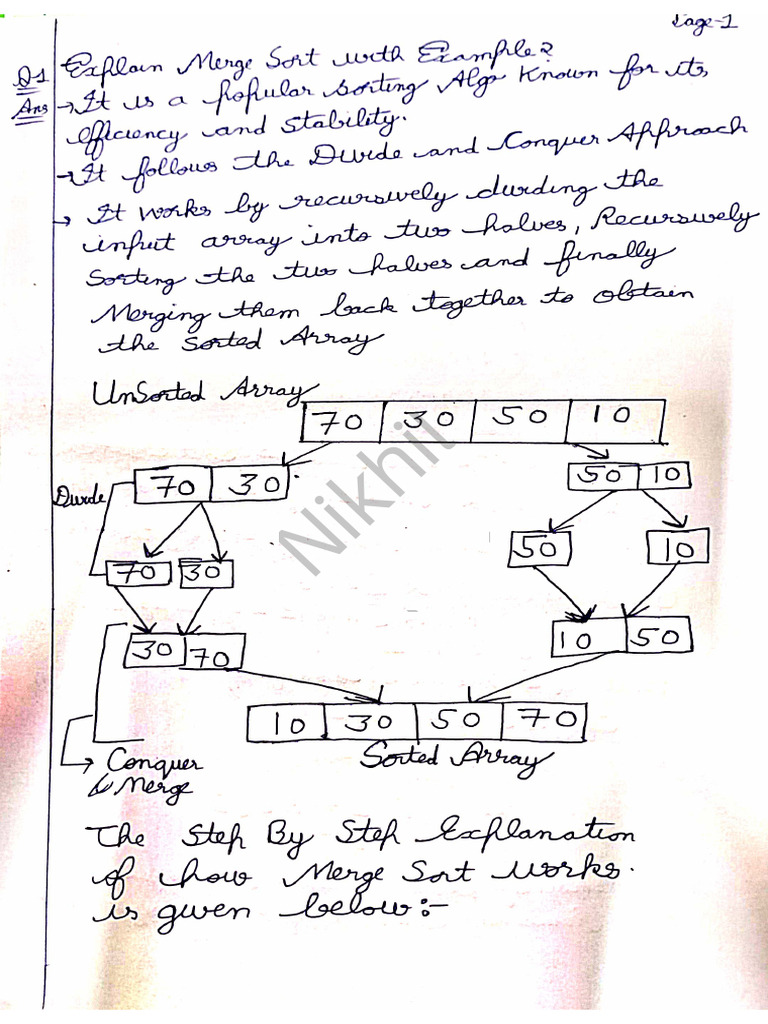 Page-1
Q1 Explain Merge Sort with Example?
Ans → It is a popular sorting Algo Known for its
efficiency and stability.
→ It follows the Divide and Conquer Approach
→ It works by recursively dividing the
input array into two halves, Recursively
Sorting the two halves and finally
Merging them back together to obtain
the Sorted Array
UnSorted Array
70 30 50 10
Divide 70 30 50 10
50 10
70 30
30 70 10 50
10 30 50 70
Conquer Sorted Array
& Merge
The Step By Step Explanation
of how Merge Sort works.
is given below:-
Nikhil